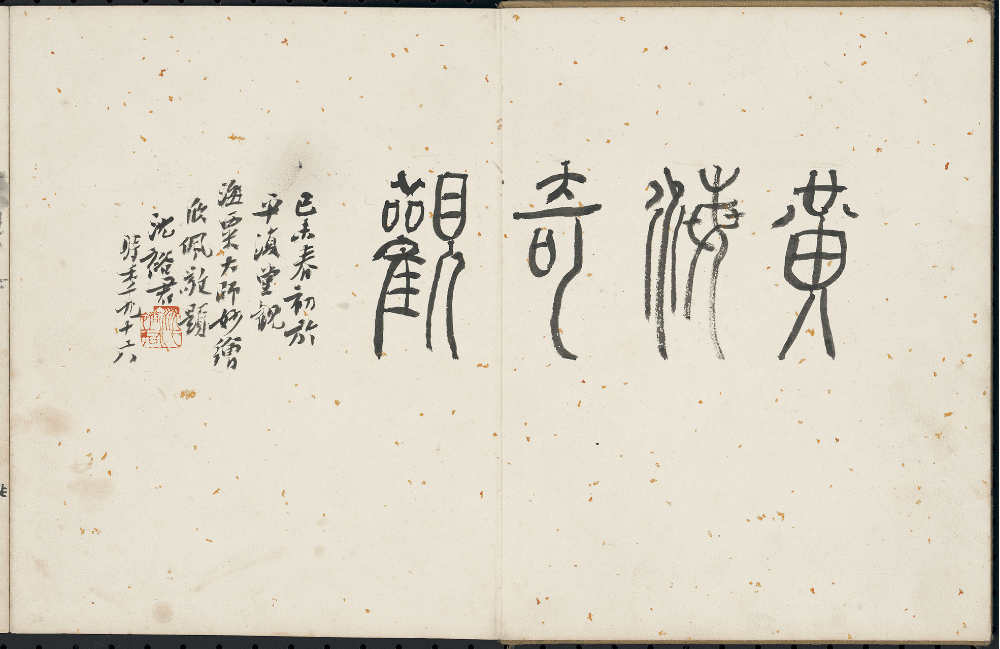 黃海奇觀
己未春初於
平滇堂觀
海粟大師妙繪
欣佩敬題
沈裕君
時年九十六